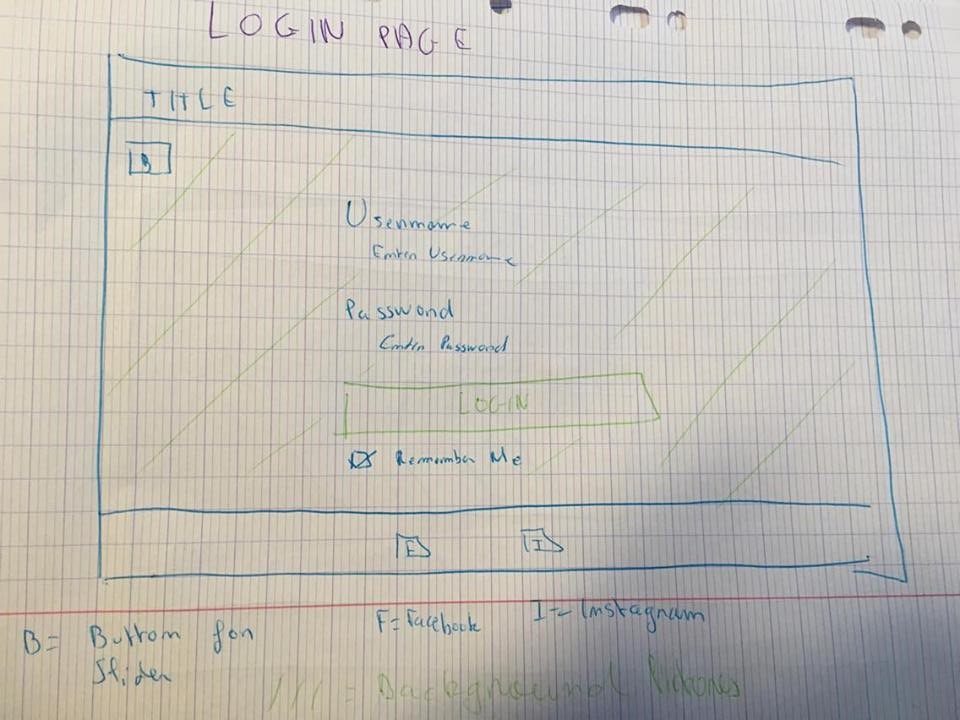 LOGIN PAGE
TITLE
B
Username
Enter Username
Password
Enter Password
LOGIN
Remember Me
F I
B = Button for Slider
F = Facebook
I = Instagram
/// = Background Pictures